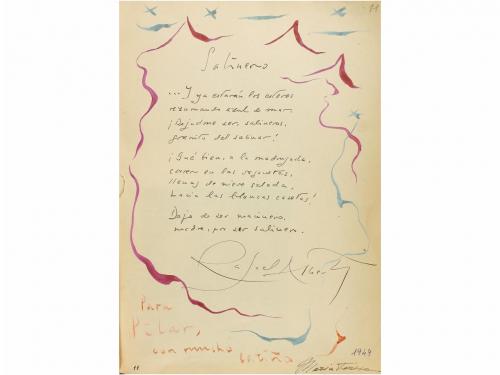 11
Salinero
... Y ya estarán los esteros
rezumando azul de mar.
¡Dejadme ser, salineros,
granito del salinar!
¡Qué bien, a la madrugada,
correr en las vagonetas,
llenas de nieve salada,
hacia las blancas casetas!
Dejo de ser marinero,
madre, por ser salinero.
Rafael Alberti
Para
Pilar,
con mucho cariño
1949
María Teresa
11